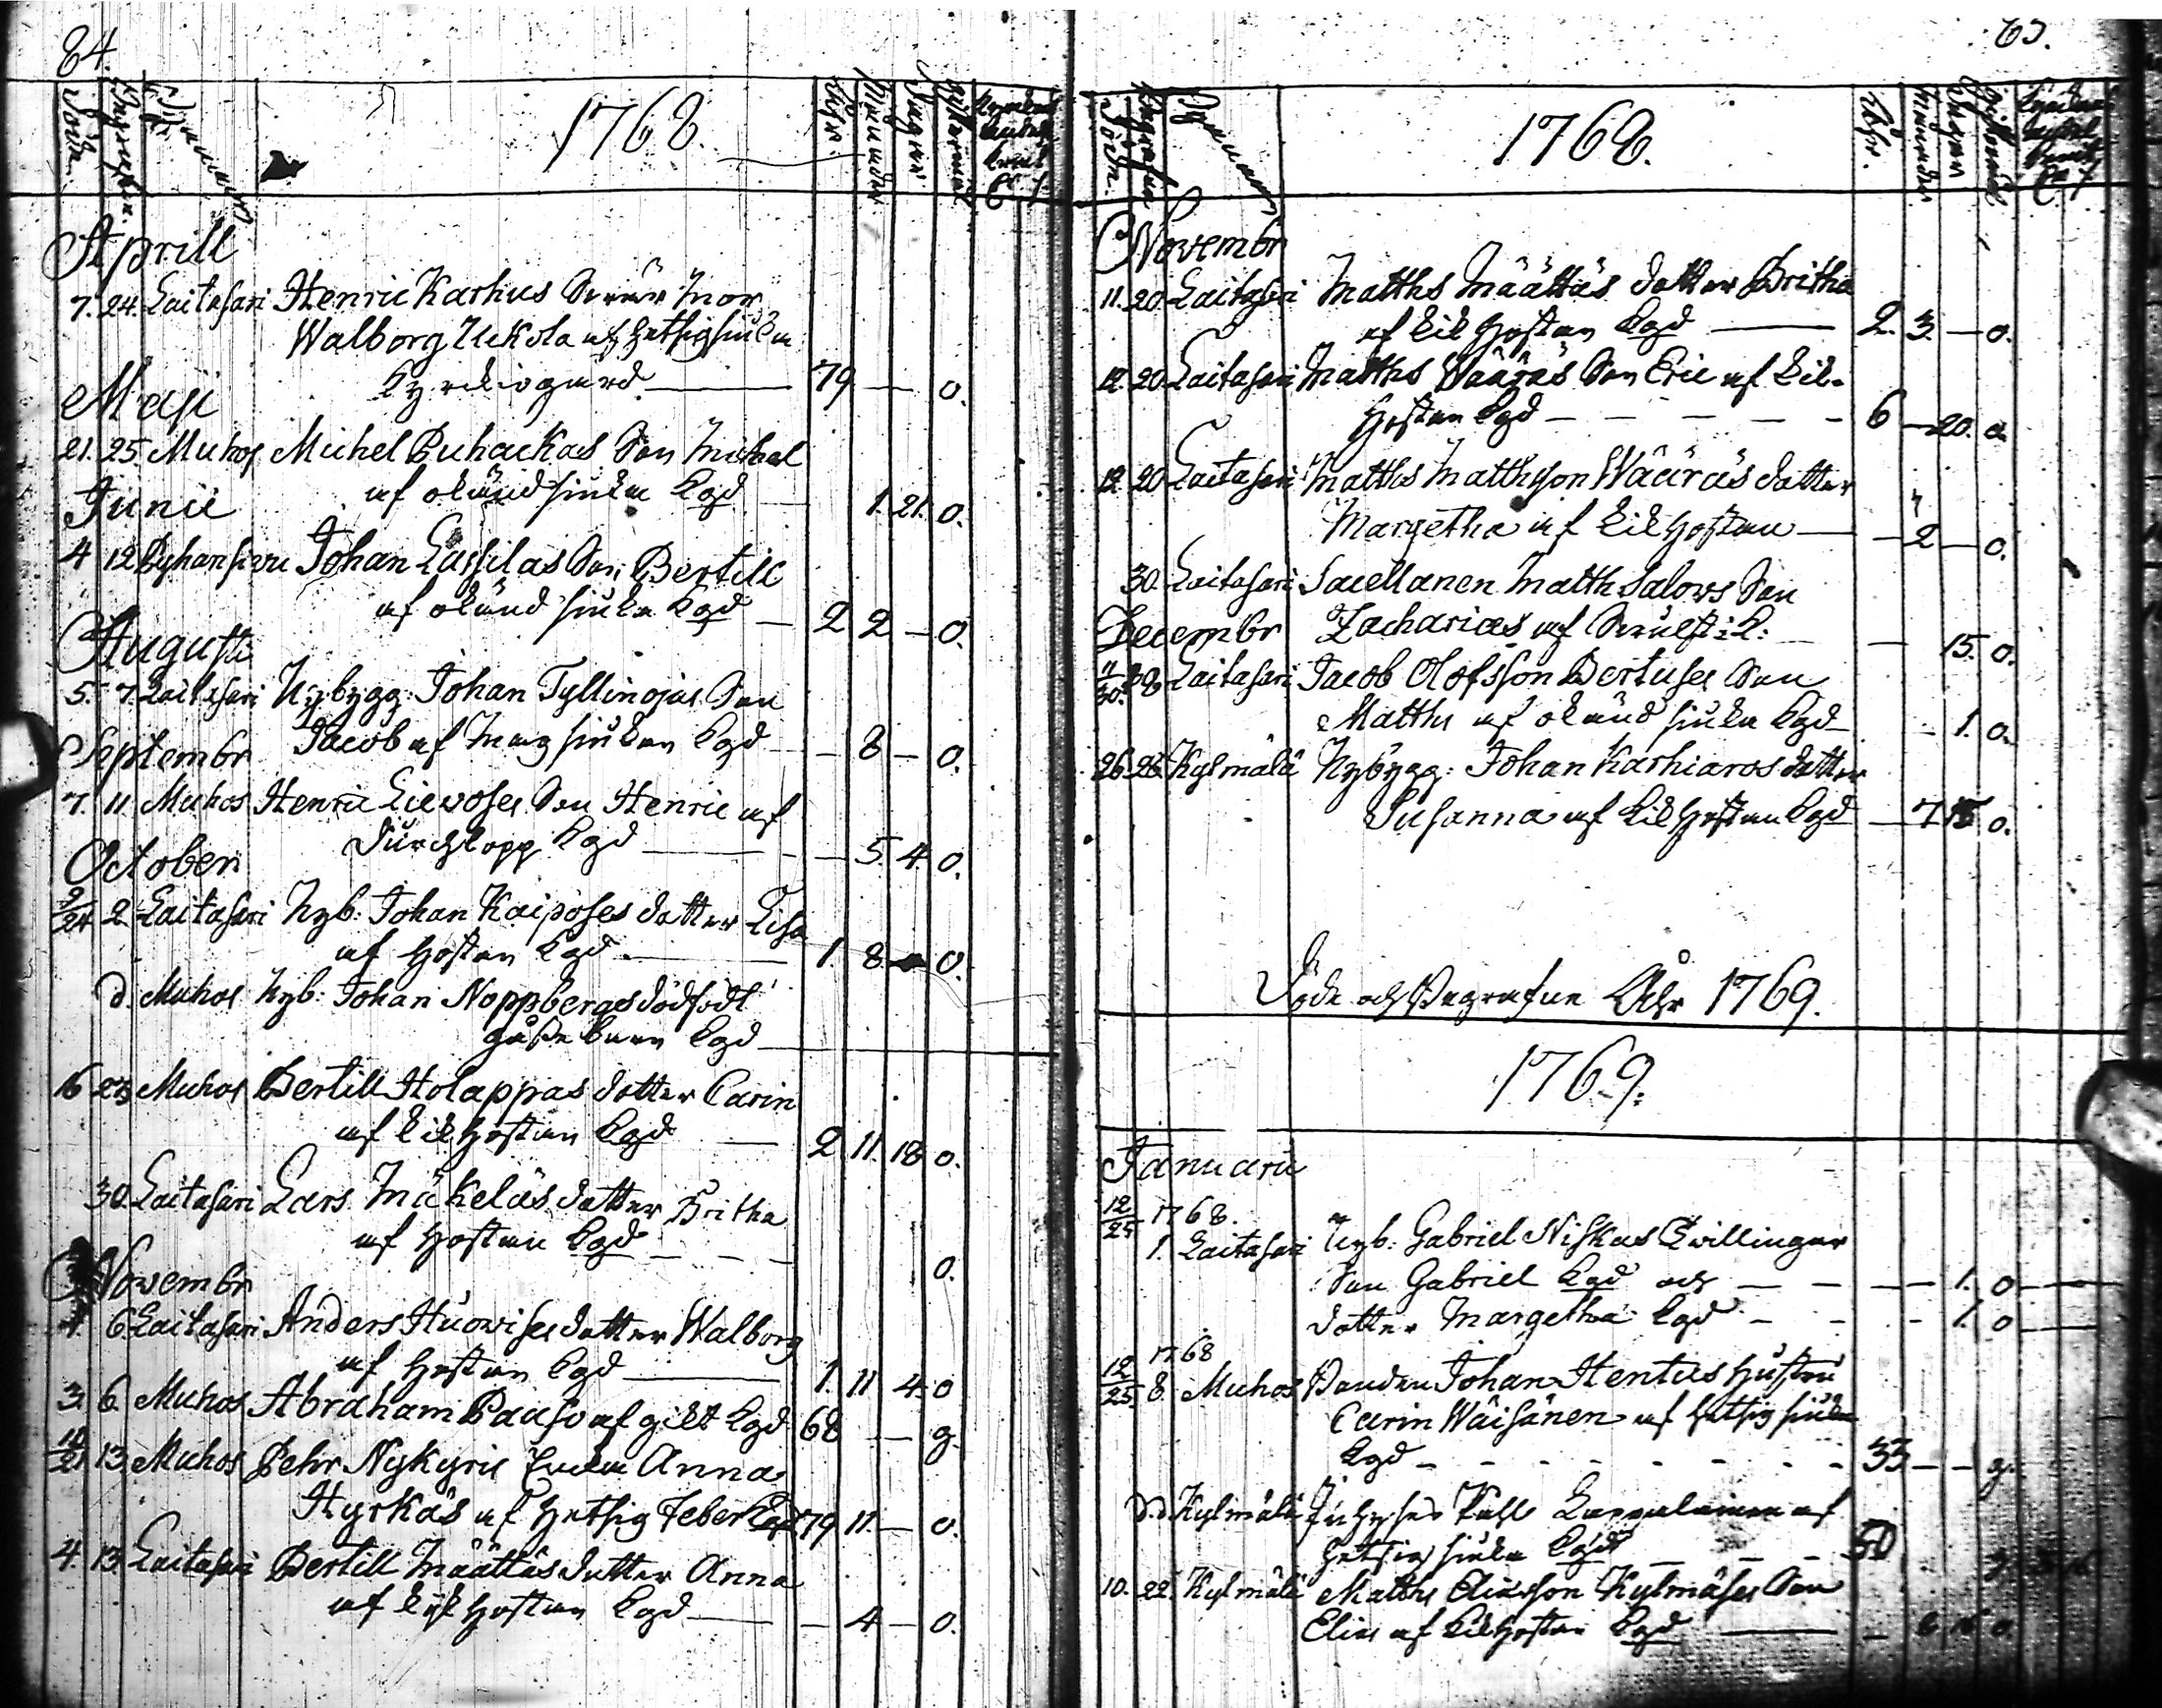 84.
Döde. Begrafne. Byanamn 1768. Åhr. Månader Dagar
Aprill
7. 24. Laitasari Henric Karhus Swär Mor
Walborg Uckola af hetsig siuka
kyrkiogård. 79 — o.
Maji
21. 25. Muhos Michel Puhackas Son Michel
af okänd siuka kgd 1. 21. o.
Junii
4 12 Pyhänsivu Johan Lassilas Son Bertill
af okänd siuka kgd — 2 2 — o.
Augusti
5. 7. Laitasari Nybygg: Johan Tyllinojas Son
Jacob af Mag siukan kgd — 8 — o.
Septembr
7. 11 Muhos Henric Lievoses Son Henric af
Durchlopp kgd — 5. 4. o.
October
9/24 2. Laitasari Nyb: Johan Kaiposes dotter Lisa
af Hostan kgd. 1. 8. o.
d. Muhos Nyb: Johan Noppbergs dödfödt
gåsse barn kgd
16 23 Muhos Bertill Holappas dotter Carin
af kik hostan kgd — 2 11. 18 o.
30. Laitasari Lars Mäkeläs dotter Britha
af Hostan kgd — — o.
Novembr
1. 6 Laitasari Anders Huowises dotter Walborg
af Hostan kgd — 1. 11 4. o
3. 6. Muhos Abraham Pauso af gikt kgd 68 — g.
10/21 13 Muhos Pehr Nykyris Enka Anna
Hyrkäs af Hetsig feber kgd 79 11. — o.
4. 13 Laitasari Bertill Määttäs dotter Anna
af kik hostan kgd — — 4 — o.
85.
Döde. Begrafne Byanamn 1768. Åhr. Månader
Novembr
11. 20 Laitasari Matths Määttäs dotter Britha
af kik hostan kgd — 2. 3. — o.
12. 20 Laitasari Matths Wääräs Son Eric af kik-
hostan kgd — — — — 6 — 20. o.
12 20 Laitasari Matths Matthsson Wääräs dotter
Margetha af kik hostan — — 2 — o.
30. Laitasari Matth Salows Son
Zacharias af — 15. o.
Decembr
11/30. 18 Laitasari Jacob Olofsson Bertuses Son
Matths af okänd siuka kgd — 1. o.
26 26 Kylmälä Nybygg: Johan Karhiaros dotter
Susanna af kik hostan kgd — 7 15 o.
Döde och Begrafne Åhr 1769.
1769.
Januarii
12/25 1768.
1. Laitasari Nyb: Gabriel Niskas Twillingar
Son Gabriel kgd och — — — 1. o —
dotter Margetha kgd — — 1. o —
12/25 1768
8. Muhos Bonden Johan Hentus hustru
Carin Wäisänen af hetsig siuka
kgd — — — — — 33 — — g.
d. d. Kylmälä Inhyses Kahl af
hetsig siuka kgd — — — 50
10. 22. Kylmälä Matths Eliasson Kylmäses Son
Elias af kik hostan kgd — —